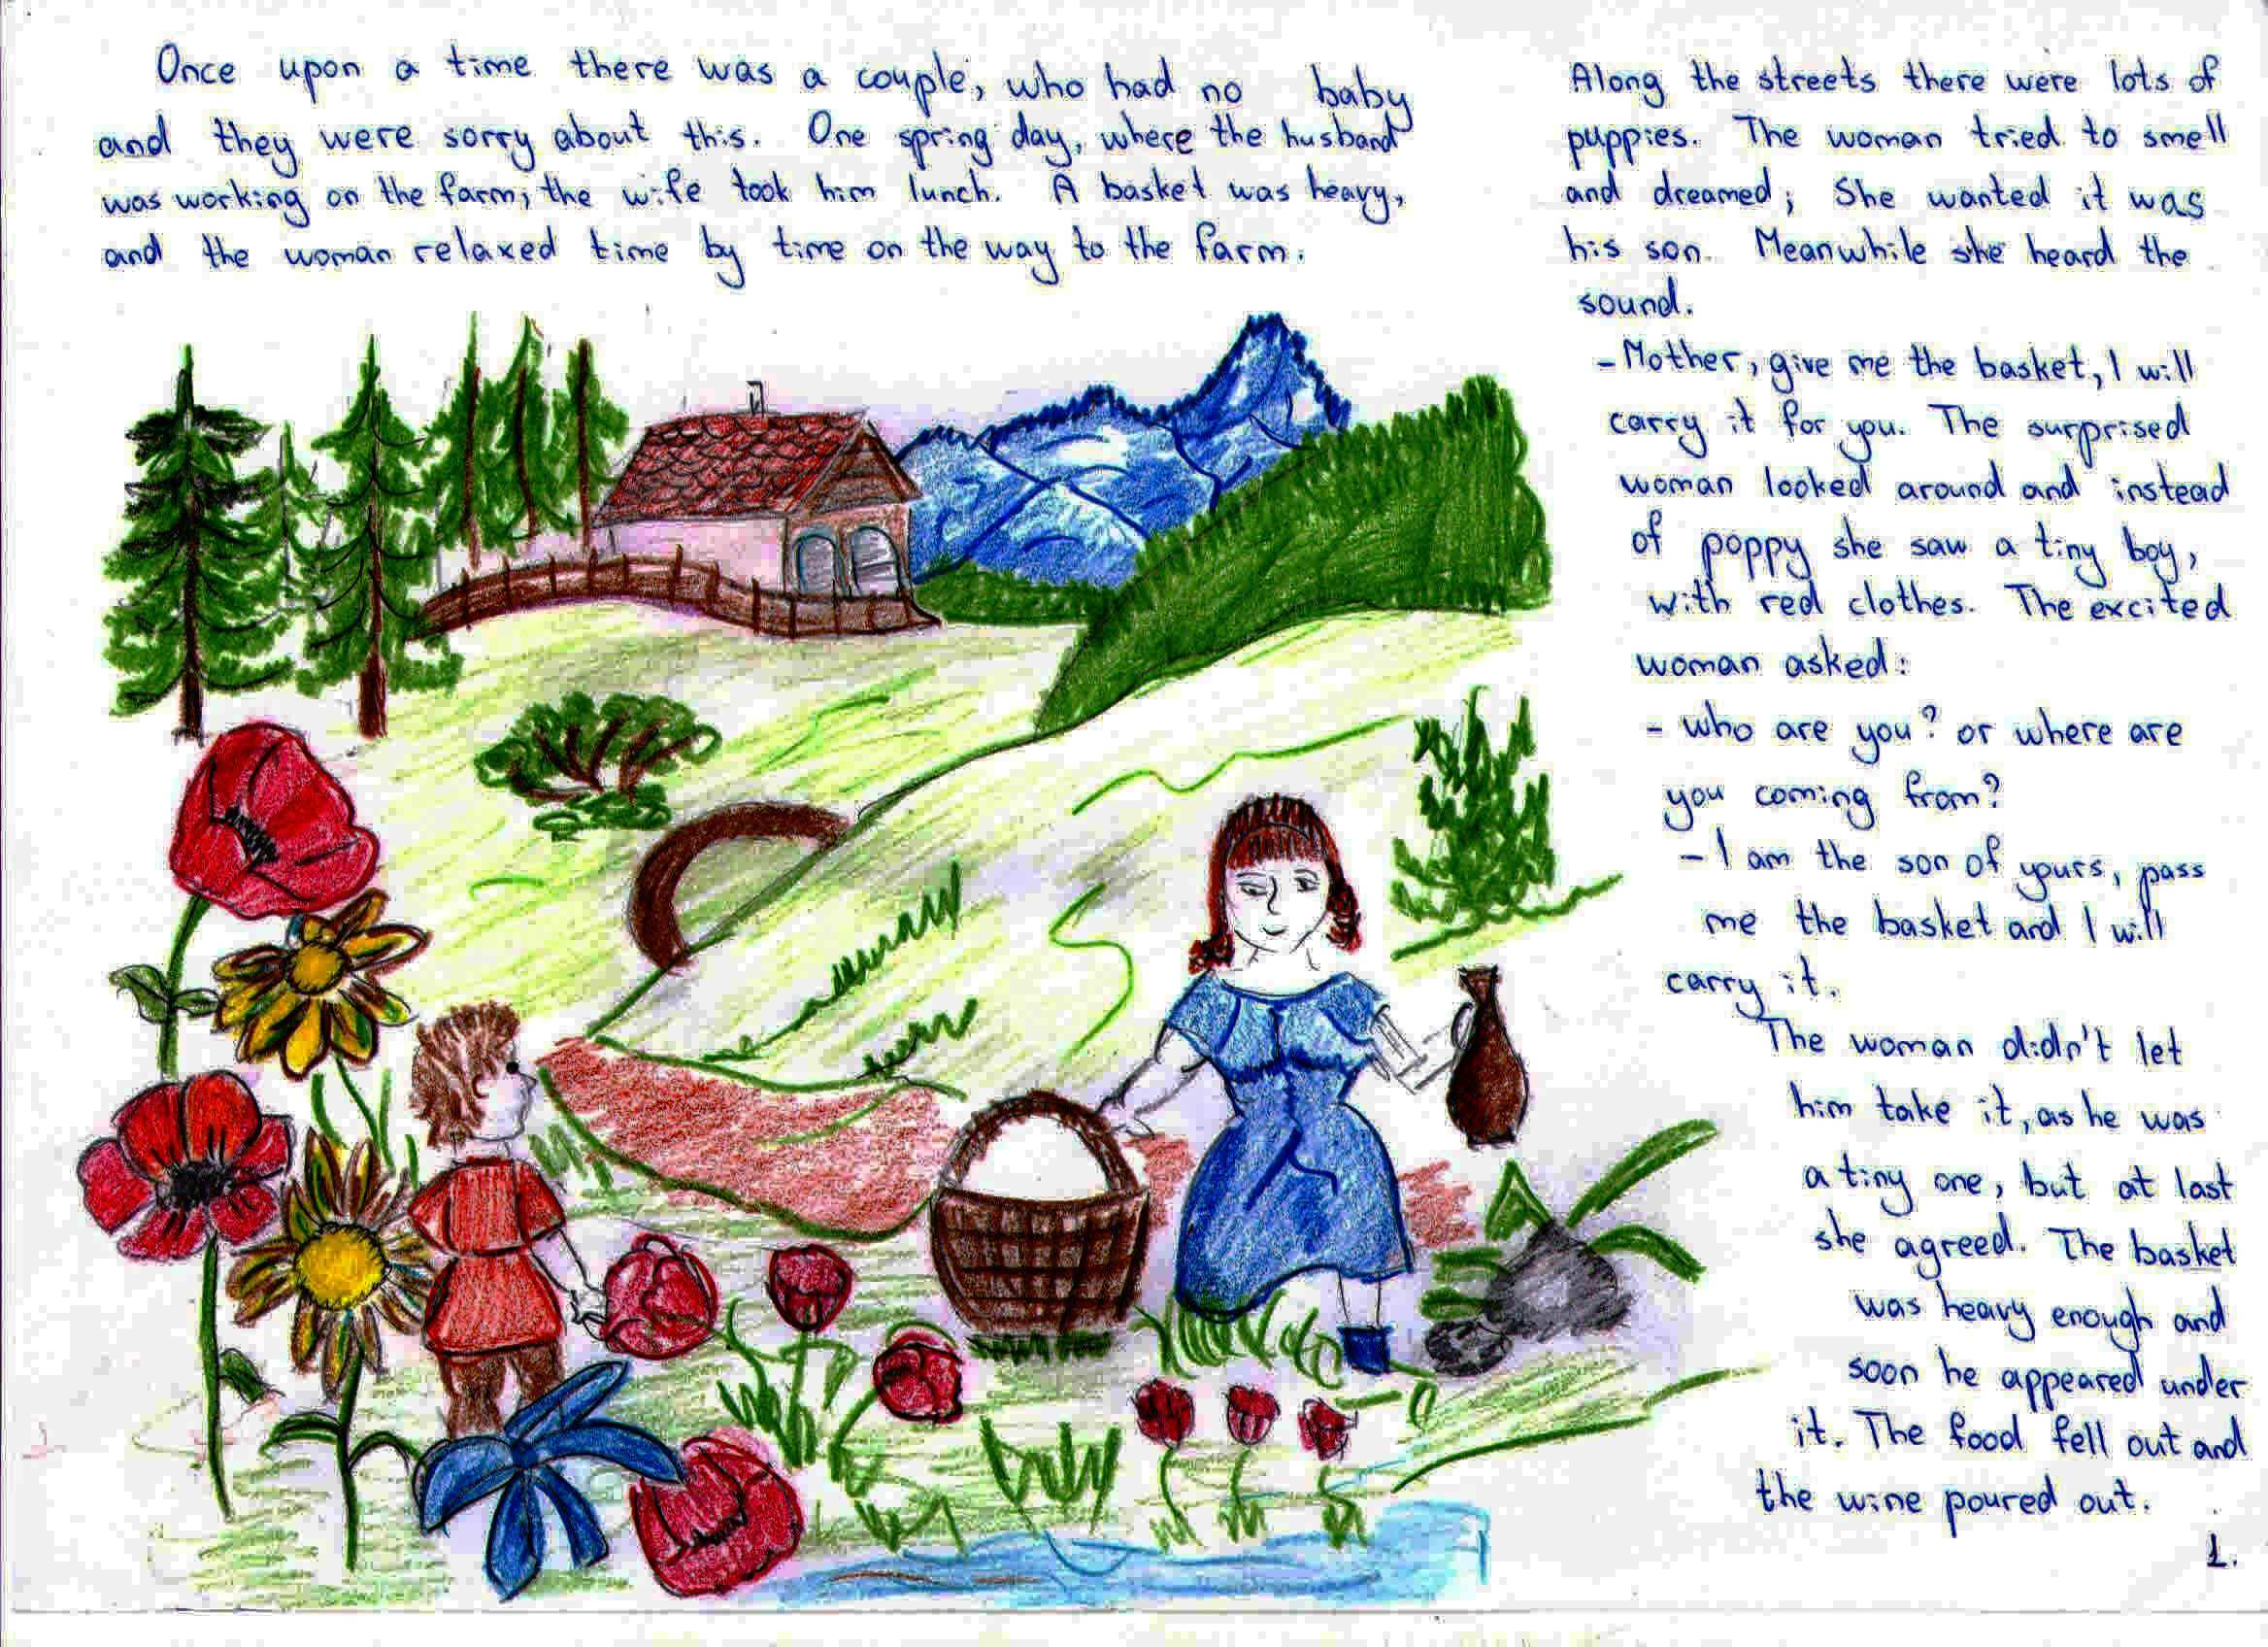 Once upon a time there was a couple, who had no baby
and they were sorry about this. One spring day, where the husband
was working on the farm, the wife took him lunch. A basket was heavy,
and the woman relaxed time by time on the way to the farm.
Along the streets there were lots of
puppies. The woman tried to smell
and dreamed; She wanted it was
his son. Meanwhile she heard the
sound.
- Mother, give me the basket, I will
carry it for you. The surprised
woman looked around and instead
of poppy she saw a tiny boy,
with red clothes. The excited
woman asked:
- who are you? or where are
you coming from?
- I am the son of yours, pass
me the basket and I will
carry it.
The woman didn't let
him take it, as he was
a tiny one, but at last
she agreed. The basket
was heavy enough and
soon he appeared under
it. The food fell out and
the wine poured out.
1.